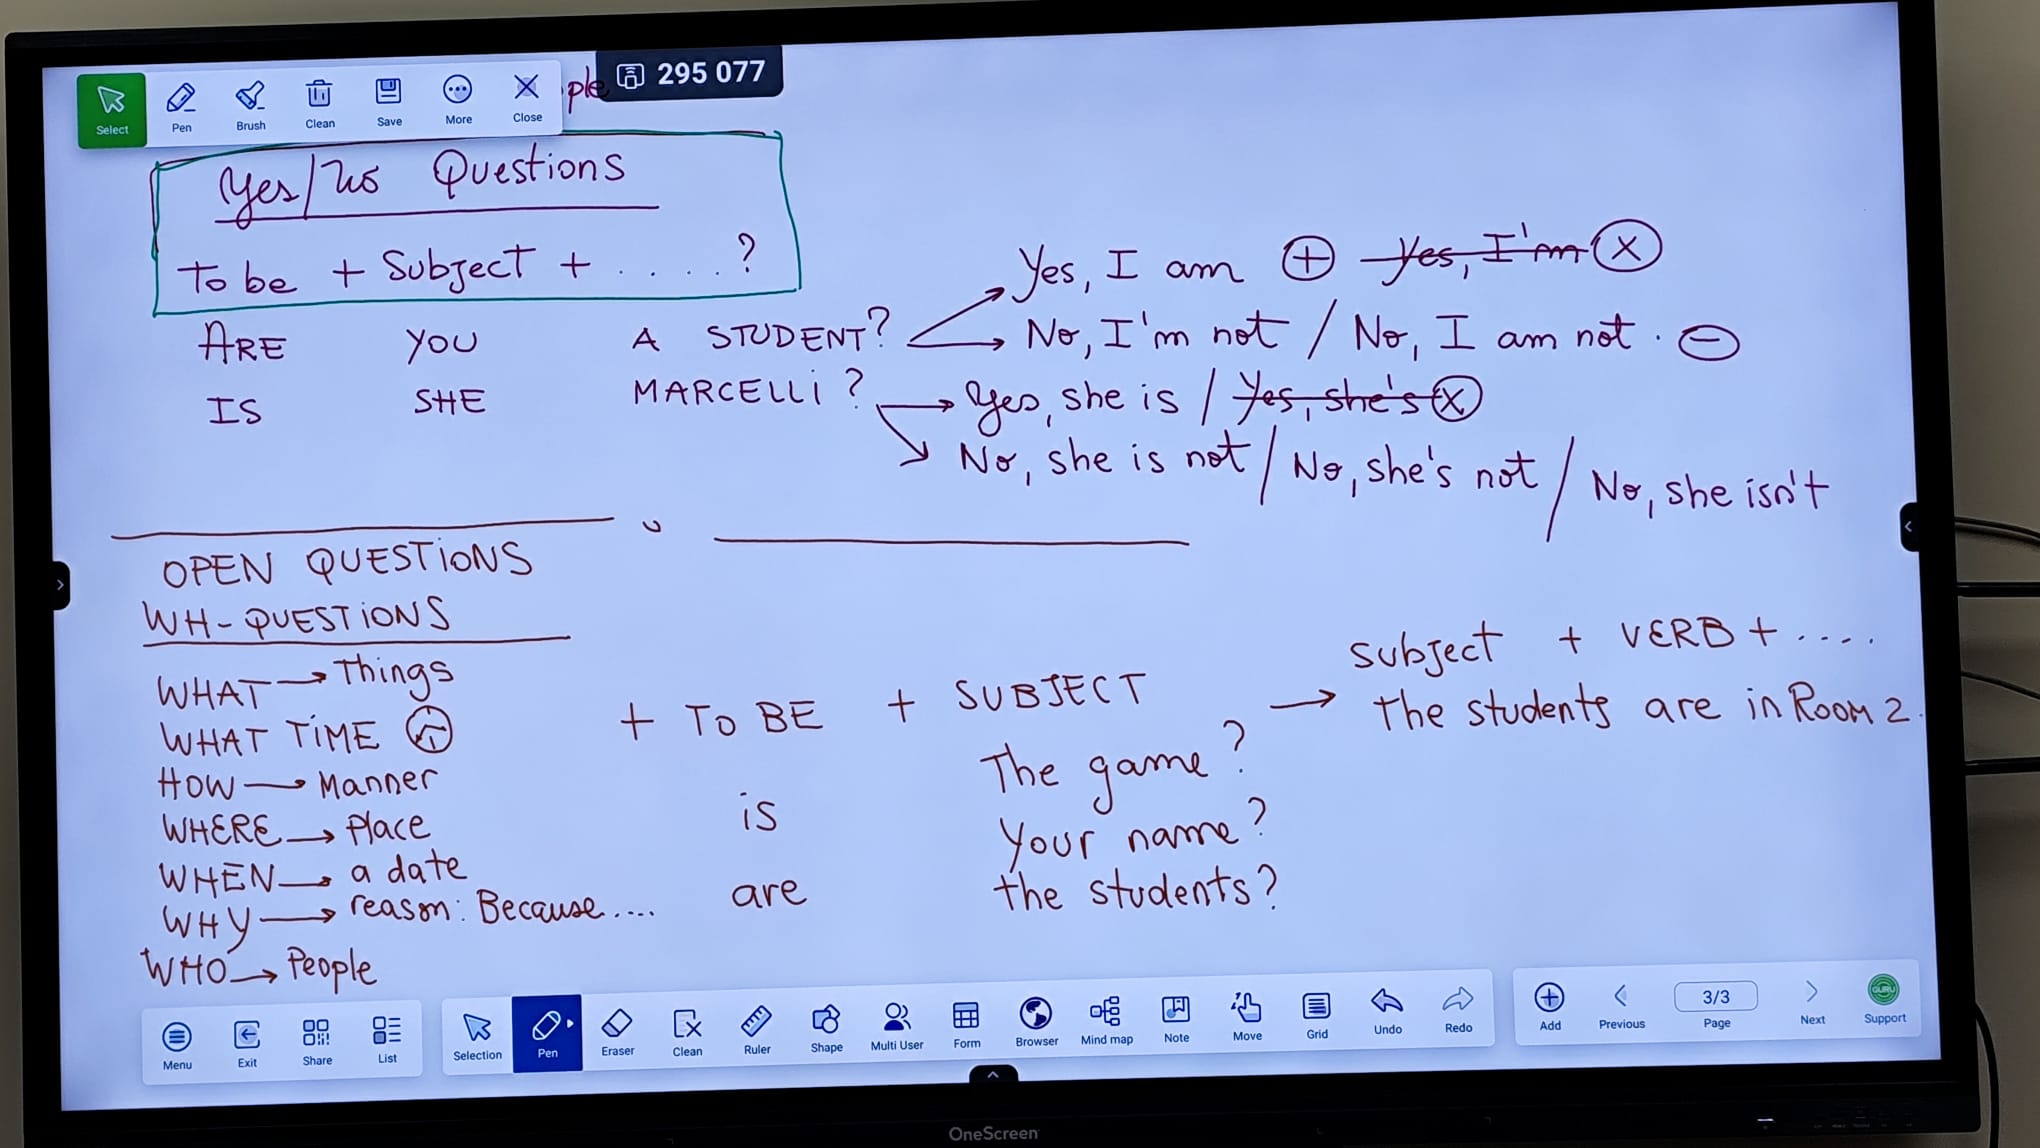 ple
295 077
Select Pen Brush Clean Save More Close
Yes/No Questions
To be + Subject + . . . . . ?
ARE YOU A STUDENT?
Yes, I am + Yes, I'm x
No, I'm not / No, I am not. -
IS SHE MARCELLI?
Yes, she is / Yes, she's x
No, she is not / No, she's not / No, she isn't
OPEN QUESTIONS
WH-QUESTIONS
WHAT → Things
WHAT TIME
HOW → Manner
WHERE → Place
WHEN → a date
WHY → reason: Because....
WHO → People
+ TO BE + SUBJECT
is
are
The game?
Your name?
the students?
→ subject + VERB + ....
The students are in Room 2.
Menu Exit Share List
Selection Pen Eraser Clean Ruler Shape Multi User Form Browser Mind map Note Move Grid Undo Redo
Add Previous 3/3 Page Next GURU Support
OneScreen